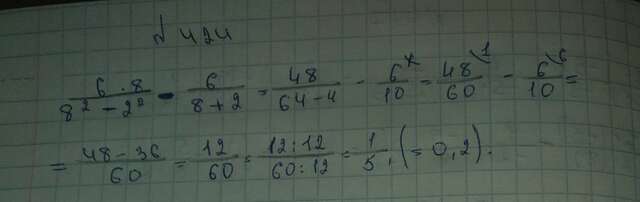 № 424
6·8/(8² − 2²) − 6/(8+2) = 48/(64−4) − 6/10 = 48/60 − 6/10 =
= (48−36)/60 = 12/60 = 12:12/60:12 = 1/5, (= 0,2).